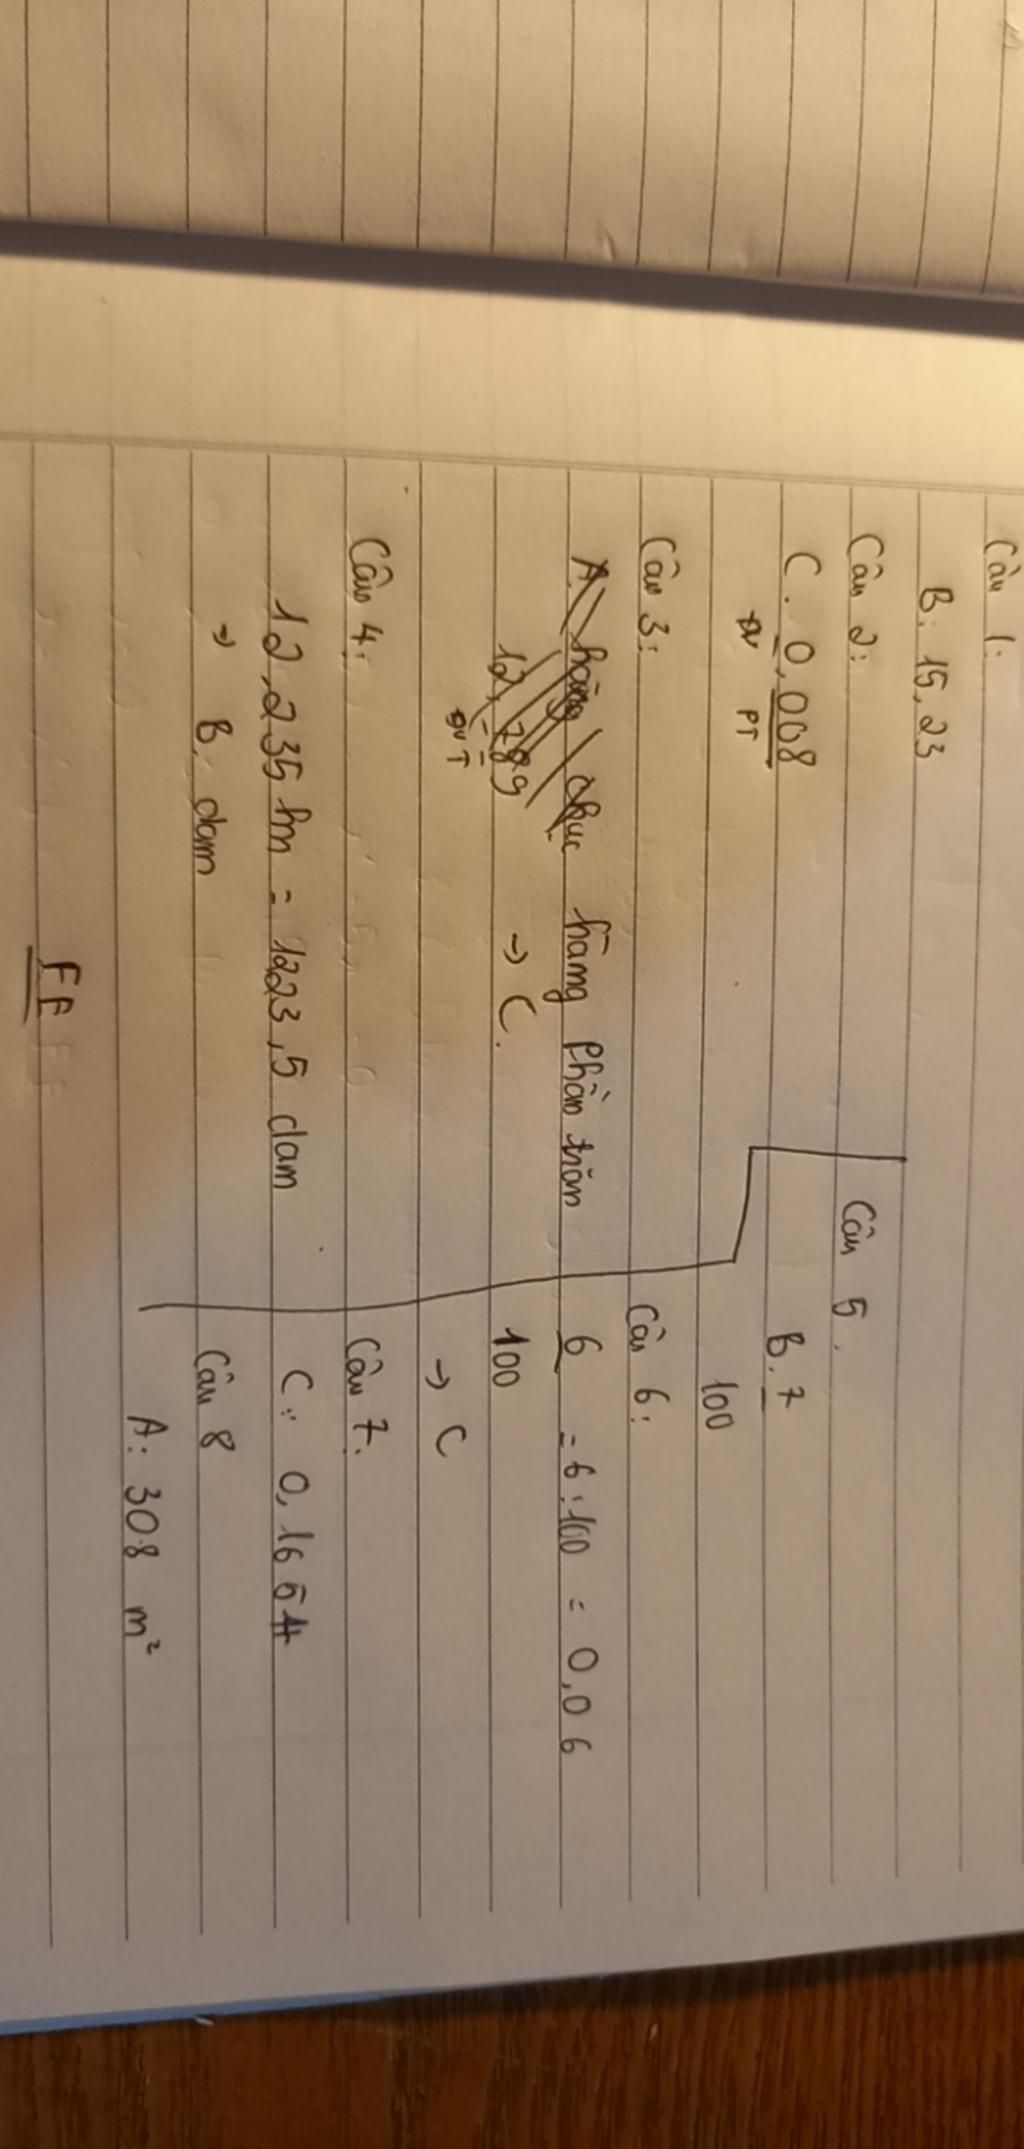 Câu 1:
B: 15,23
Câu 2:
C. 0,008
ĐV PT
Câu 3:
A. hàng chục hàng phần trăn
12,789 → C.
ĐV T
Câu 4:
12,235 hm = 1223,5 dam
→ B. dam
Câu 5.
B. 7
100
Câu 6:
6 = 6:100 = 0,06
100
→ C
Câu 7:
C: 0,1654
Câu 8
A: 308 m²
FE